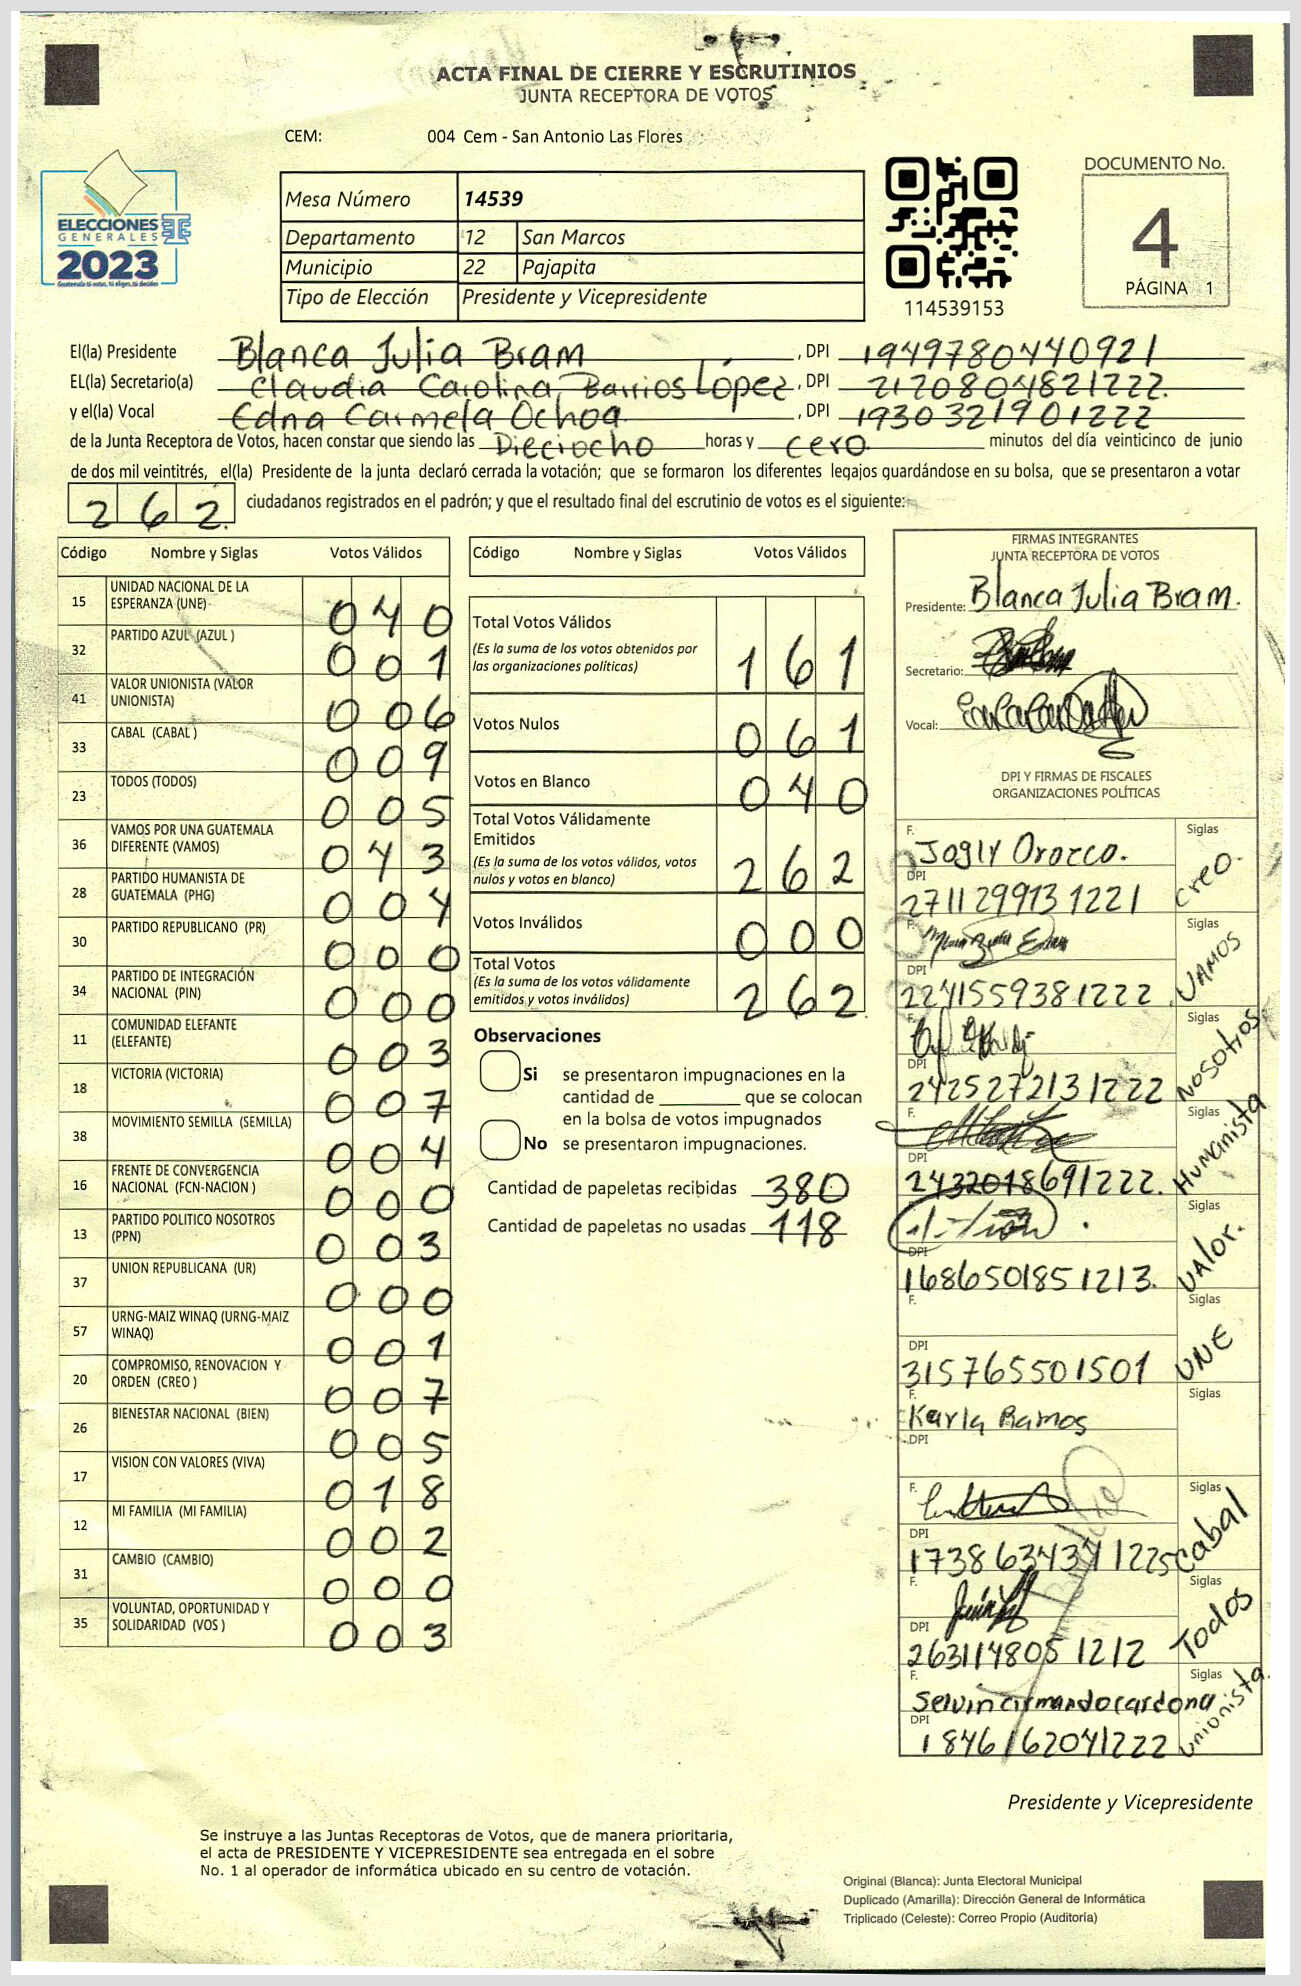 ACTA FINAL DE CIERRE Y ESCRUTINIOS
JUNTA RECEPTORA DE VOTOS
CEM: 004 Cem - San Antonio Las Flores
ELECCIONES
GENERALES
2023
Guatemala tú votas, tú eliges, tú decides
Mesa Número 14539
Departamento 12 San Marcos
Municipio 22 Pajapita
Tipo de Elección Presidente y Vicepresidente
114539153
DOCUMENTO No.
4
PÁGINA 1
El(la) Presidente Blanca Julia Bram , DPI 1949780440921
EL(la) Secretario(a) Claudia Carolina Barrios López , DPI 2120804821222.
y el(la) Vocal Edna Carmela Ochoa , DPI 1930321901222
de la Junta Receptora de Votos, hacen constar que siendo las Dieciocho horas y cero minutos del día veinticinco de junio
de dos mil veintitrés, el(la) Presidente de la junta declaró cerrada la votación; que se formaron los diferentes legajos guardándose en su bolsa, que se presentaron a votar
262. ciudadanos registrados en el padrón; y que el resultado final del escrutinio de votos es el siguiente:
Código Nombre y Siglas Votos Válidos
15 UNIDAD NACIONAL DE LA ESPERANZA (UNE) 040
32 PARTIDO AZUL (AZUL ) 001
41 VALOR UNIONISTA (VALOR UNIONISTA) 006
33 CABAL (CABAL ) 009
23 TODOS (TODOS) 005
36 VAMOS POR UNA GUATEMALA DIFERENTE (VAMOS) 043
28 PARTIDO HUMANISTA DE GUATEMALA (PHG) 004
30 PARTIDO REPUBLICANO (PR) 000
34 PARTIDO DE INTEGRACIÓN NACIONAL (PIN) 000
11 COMUNIDAD ELEFANTE (ELEFANTE) 003
18 VICTORIA (VICTORIA) 007
38 MOVIMIENTO SEMILLA (SEMILLA) 004
16 FRENTE DE CONVERGENCIA NACIONAL (FCN-NACION ) 000
13 PARTIDO POLITICO NOSOTROS (PPN) 003
37 UNION REPUBLICANA (UR) 000
57 URNG-MAIZ WINAQ (URNG-MAIZ WINAQ) 001
20 COMPROMISO, RENOVACION Y ORDEN (CREO ) 007
26 BIENESTAR NACIONAL (BIEN) 005
17 VISION CON VALORES (VIVA) 018
12 MI FAMILIA (MI FAMILIA) 002
31 CAMBIO (CAMBIO) 000
35 VOLUNTAD, OPORTUNIDAD Y SOLIDARIDAD (VOS ) 003
Código Nombre y Siglas Votos Válidos
Total Votos Válidos
(Es la suma de los votos obtenidos por
las organizaciones políticas) 161
Votos Nulos 061
Votos en Blanco 040
Total Votos Válidamente
Emitidos
(Es la suma de los votos válidos, votos
nulos y votos en blanco) 262
Votos Inválidos 000
Total Votos
(Es la suma de los votos válidamente
emitidos y votos inválidos) 262.
Observaciones
Si se presentaron impugnaciones en la
cantidad de ________ que se colocan
en la bolsa de votos impugnados
No se presentaron impugnaciones.
Cantidad de papeletas recibidas 380
Cantidad de papeletas no usadas 118
FIRMAS INTEGRANTES
JUNTA RECEPTORA DE VOTOS
Presidente: Blanca Julia Bram.
Secretario:
Vocal:
DPI Y FIRMAS DE FISCALES
ORGANIZACIONES POLÍTICAS
F. Jogly Orozco. Siglas Creo.
DPI 2711299131221
F. Siglas VAMOS
DPI 2241559381222
F. Siglas Nosotros
DPI 2425272131222
F. Siglas Humanista
DPI 2432018691222.
F. Siglas Valor.
DPI 1686501851213.
F. Siglas UNE
DPI 315765501501
F. Karla Ramos Siglas
DPI
F. Siglas Cabal
DPI
F. Siglas Todos
DPI 2631148051212
F. Selvin armando cardona Siglas unionista.
DPI 1846162041222
Presidente y Vicepresidente
Se instruye a las Juntas Receptoras de Votos, que de manera prioritaria,
el acta de PRESIDENTE Y VICEPRESIDENTE sea entregada en el sobre
No. 1 al operador de informática ubicado en su centro de votación.
Original (Blanca): Junta Electoral Municipal
Duplicado (Amarilla): Dirección General de Informática
Triplicado (Celeste): Correo Propio (Auditoría)